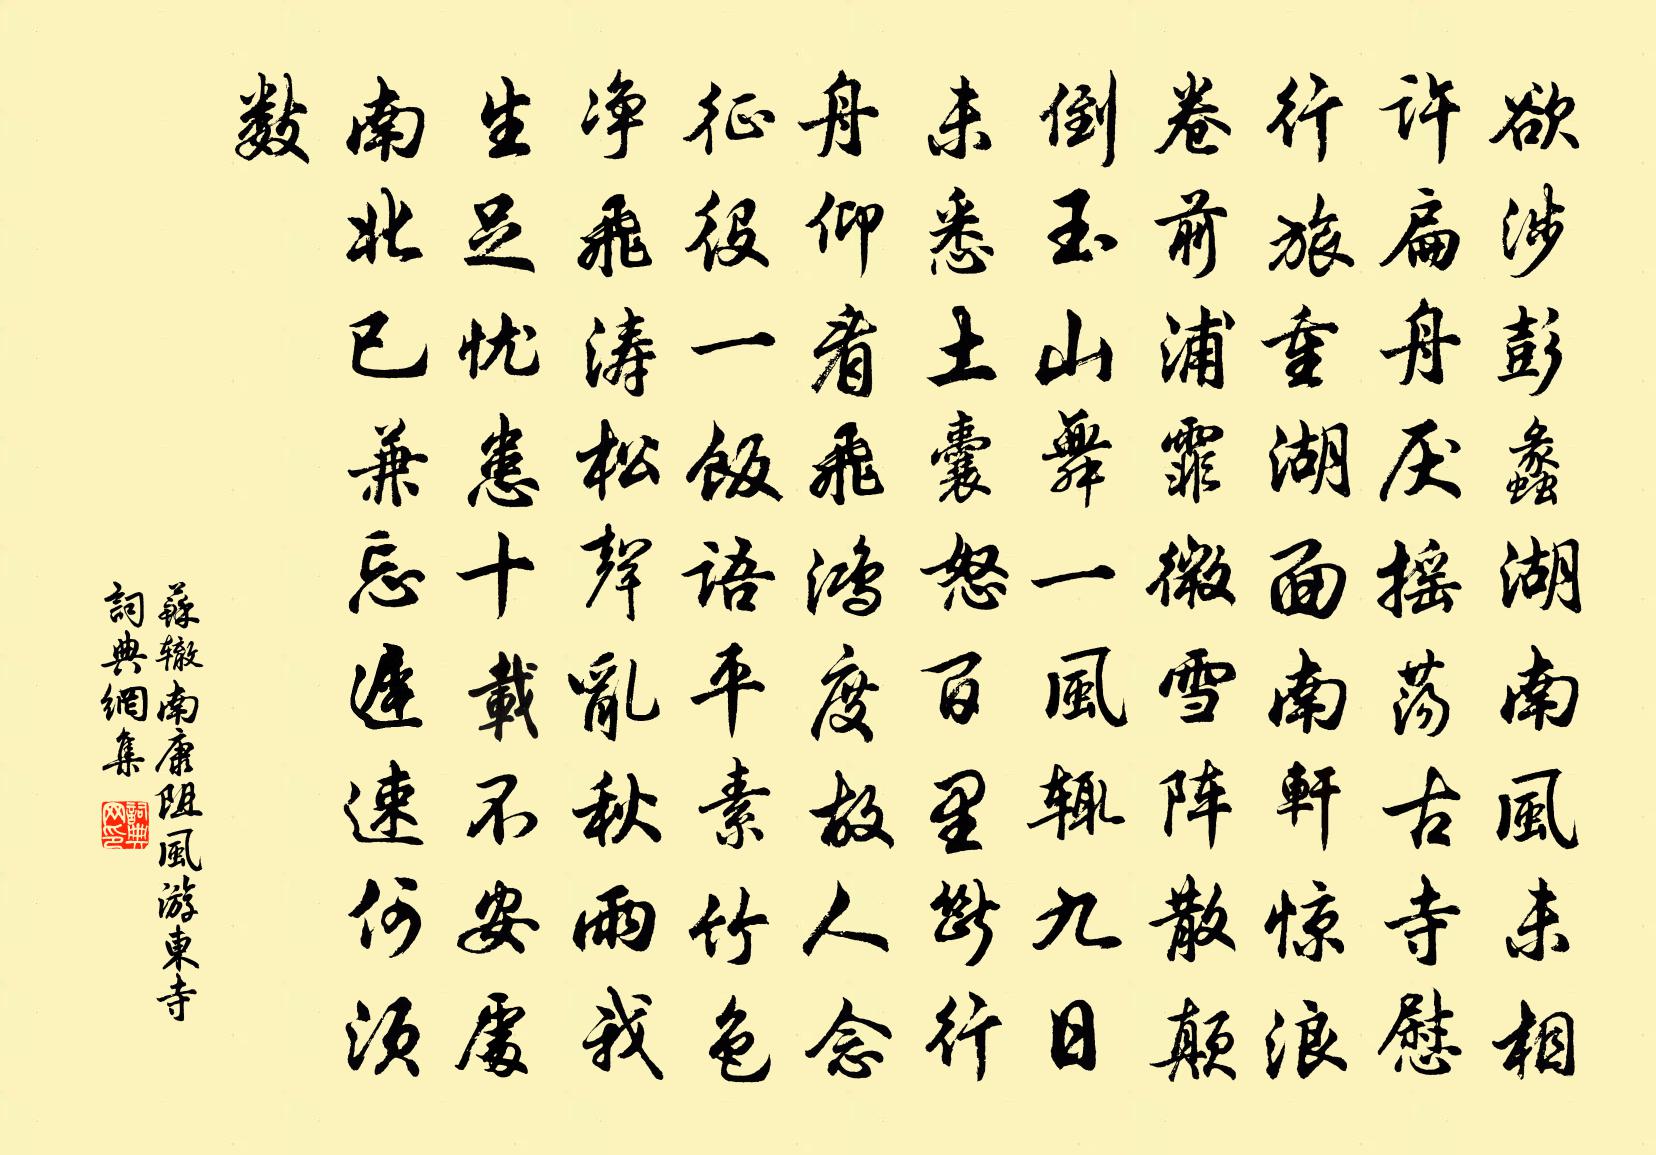 欲涉彭蠡湖南風未相
許扁舟厌摇荡古寺慰
行旅重湖面南軒惊浪
卷前浦霏微雪阵散颠
倒玉山舞一風輒九日
未悉土囊怒百里斷行
舟仰看飛鴻度故人念
征役一飯語平素竹色
净飛涛松聲亂秋雨我
生足忧患十載不安處
南北已兼忘遲速何須
数
蘇辙南康阻風游東寺
詞典網集
詞典网印